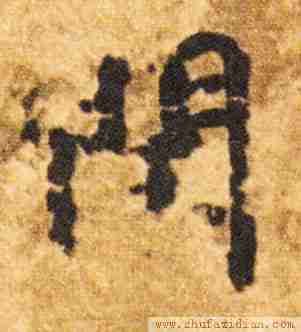 門
www.shufazidian.com